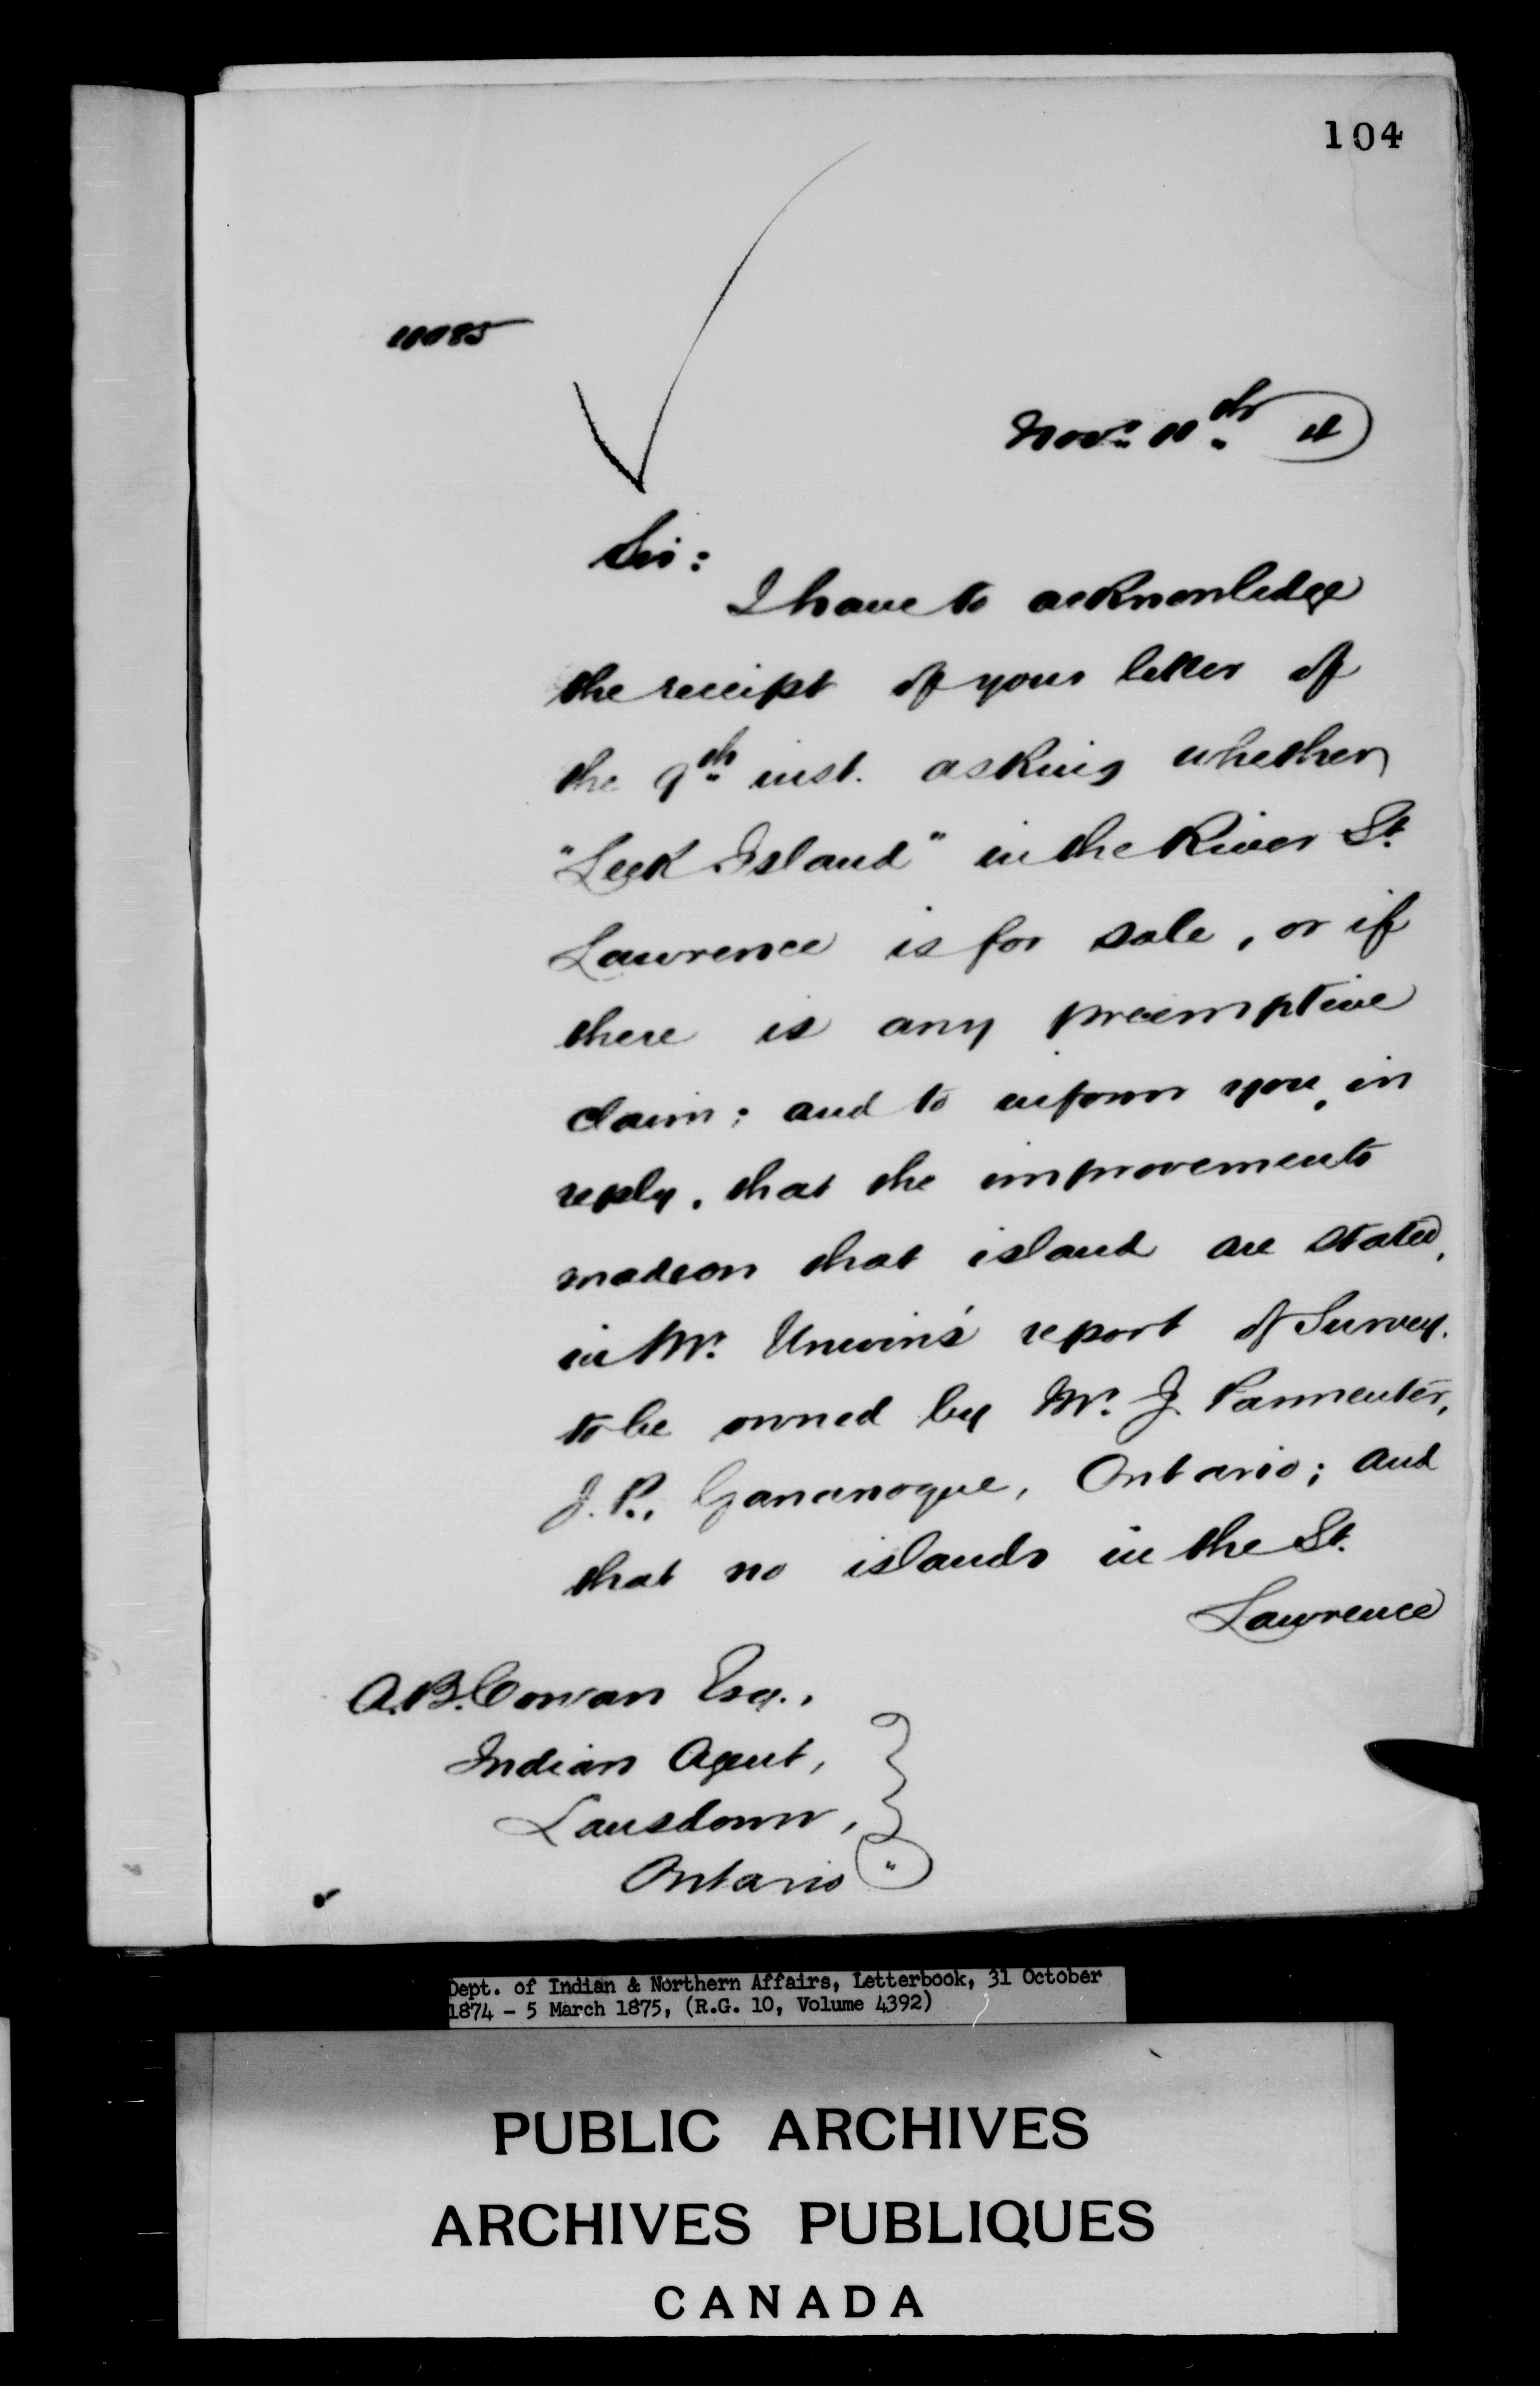 104
Novr. 11th 4
Sir:
I have to acknowledge
the receipt of your letter of
the 9th inst. asking whether
"Leek Island" in the River St.
Lawrence is for sale, or if
there is any preemptive
claim; and to inform you, in
reply, that the improvements
made on that island are stated,
in Mr. Unwin's report of Survey,
to be owned by Mr. J. Parmenter,
J.P., Gananoque, Ontario; and
that no islands in the St.
Lawrence
A.B. Cowan Esq.,
Indian Agent,
Lansdown,
Ontario "
Dept. of Indian & Northern Affairs, Letterbook, 31 October
1874 - 5 March 1875, (R.G. 10, Volume 4392)
PUBLIC ARCHIVES
ARCHIVES PUBLIQUES
CANADA